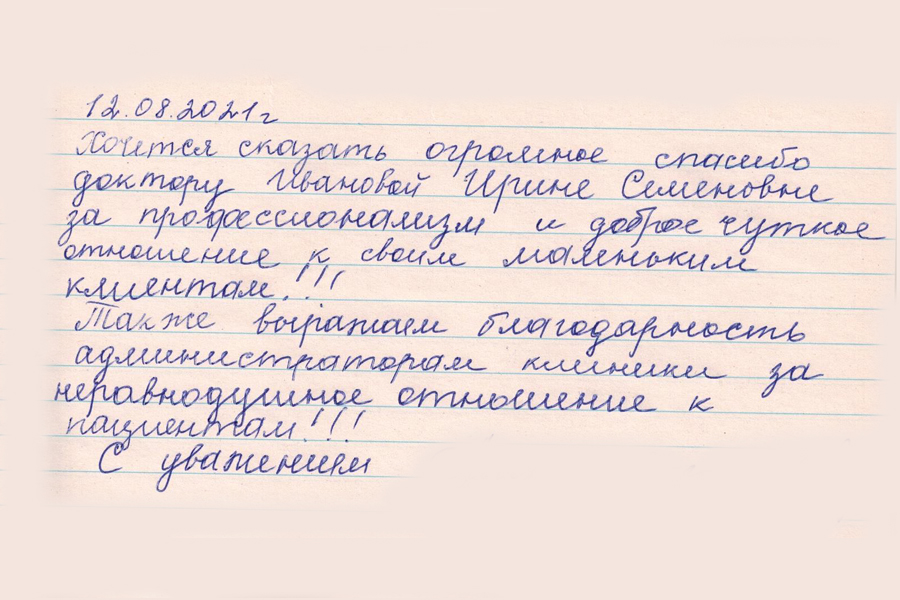 12.08.2021г
Хочется сказать огромное спасибо
доктору Ивановой Ирине Семеновне
за профессионализм и доброе чуткое
отношение к своим маленьким
клиентам!!!
Также выражаем благодарность
администраторам клиники за
неравнодушное отношение к
пациентам!!!
С уважением